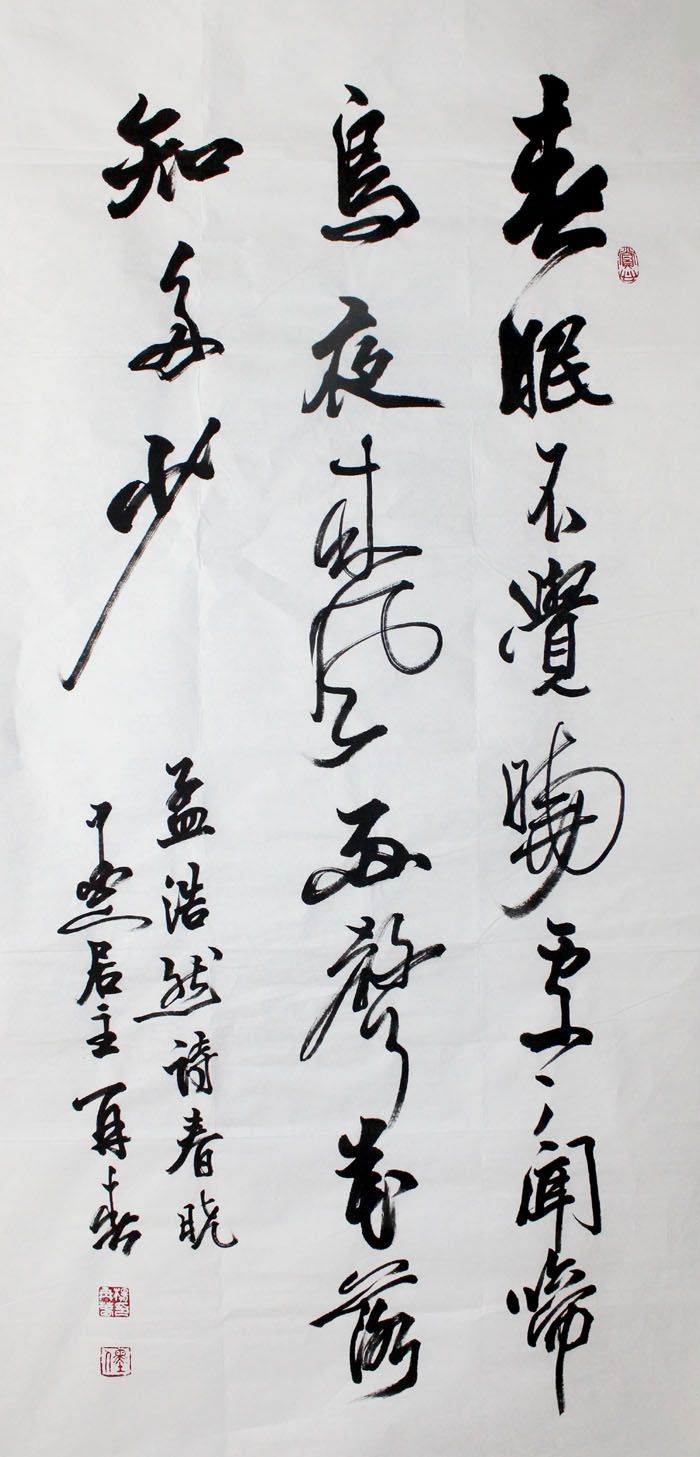 春眠不覺曉處々聞啼
鳥夜來風雨聲花落
知多少
孟浩然诗春晓
居主再春